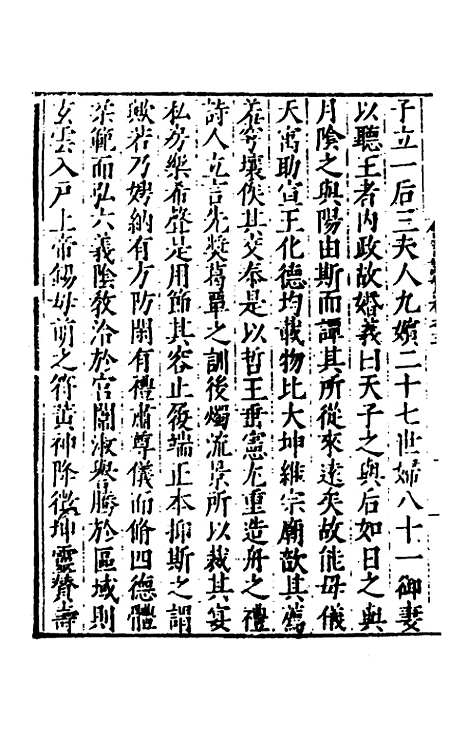 子立一后三夫人九嬪二十七世婦八十一御妻
以聽王者内政故婚義曰天子之與后如日之與
月陰之與陽由斯而譚其所從來遠矣故能母儀
天寓助宣王化德均載物比大坤維宗廟歆其薦
羞穹壤俟其交泰是以哲王垂憲尤重造舟之禮
詩人立言先奬葛覃之訓後燭流景所以裁其宴
私房樂希聲是用節其容止履端正本抑斯之謂
歟若乃娉納有方防閑有禮肅尊儀而脩四德體
柔範而弘六義陰教洽於宫闈淑譽騰於區域則
玄雲入戸上帝錫母萌之符黄神降徵坤靈贊壽